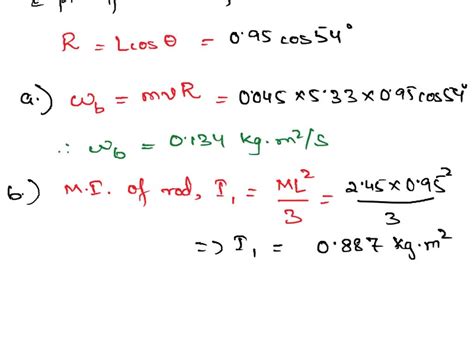 R = Lcosθ = 0.95 cos54°
a.) ω_b = mvR = 0.045 × 5.33 × 0.95cos54°
∴ ω_b = 0.134 kg.m²/s
b.) M.I. of rod, I₁ = ML²/3 = 2.45×0.95²/3
=> I₁ = 0.887 kg.m²